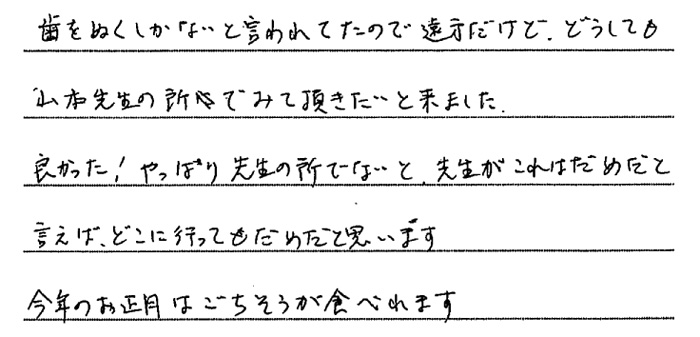 歯をぬくしかないと言われてたので遠方だけど、どうしても
山本先生の所でみて頂きたいと来ました。
良かった！やっぱり先生の所でないと、先生がこれはだめだと
言えば、どこに行ってもだめだと思います
今年のお正月はごちそうが食べれます